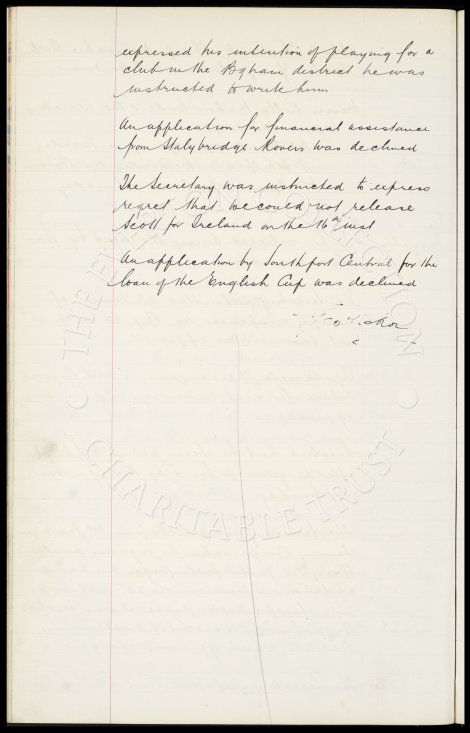 expressed his intention of playing for a
club in the Bgham district he was
instructed to write him
An application for financial assistance
from Stalybridge Rovers was declined
The Secretary was instructed to express
regret that we could not release
Scott for Ireland on the 16th inst
An application by Southport Central for the
loan of the English Cup was declined
CHARITABLE TRUST